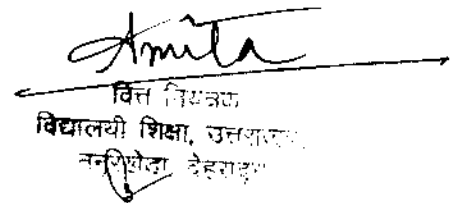 Amita
वित्त नियंत्रक
विद्यालयी शिक्षा, उत्तराखण्ड,
ननूरखेड़ा देहरादून